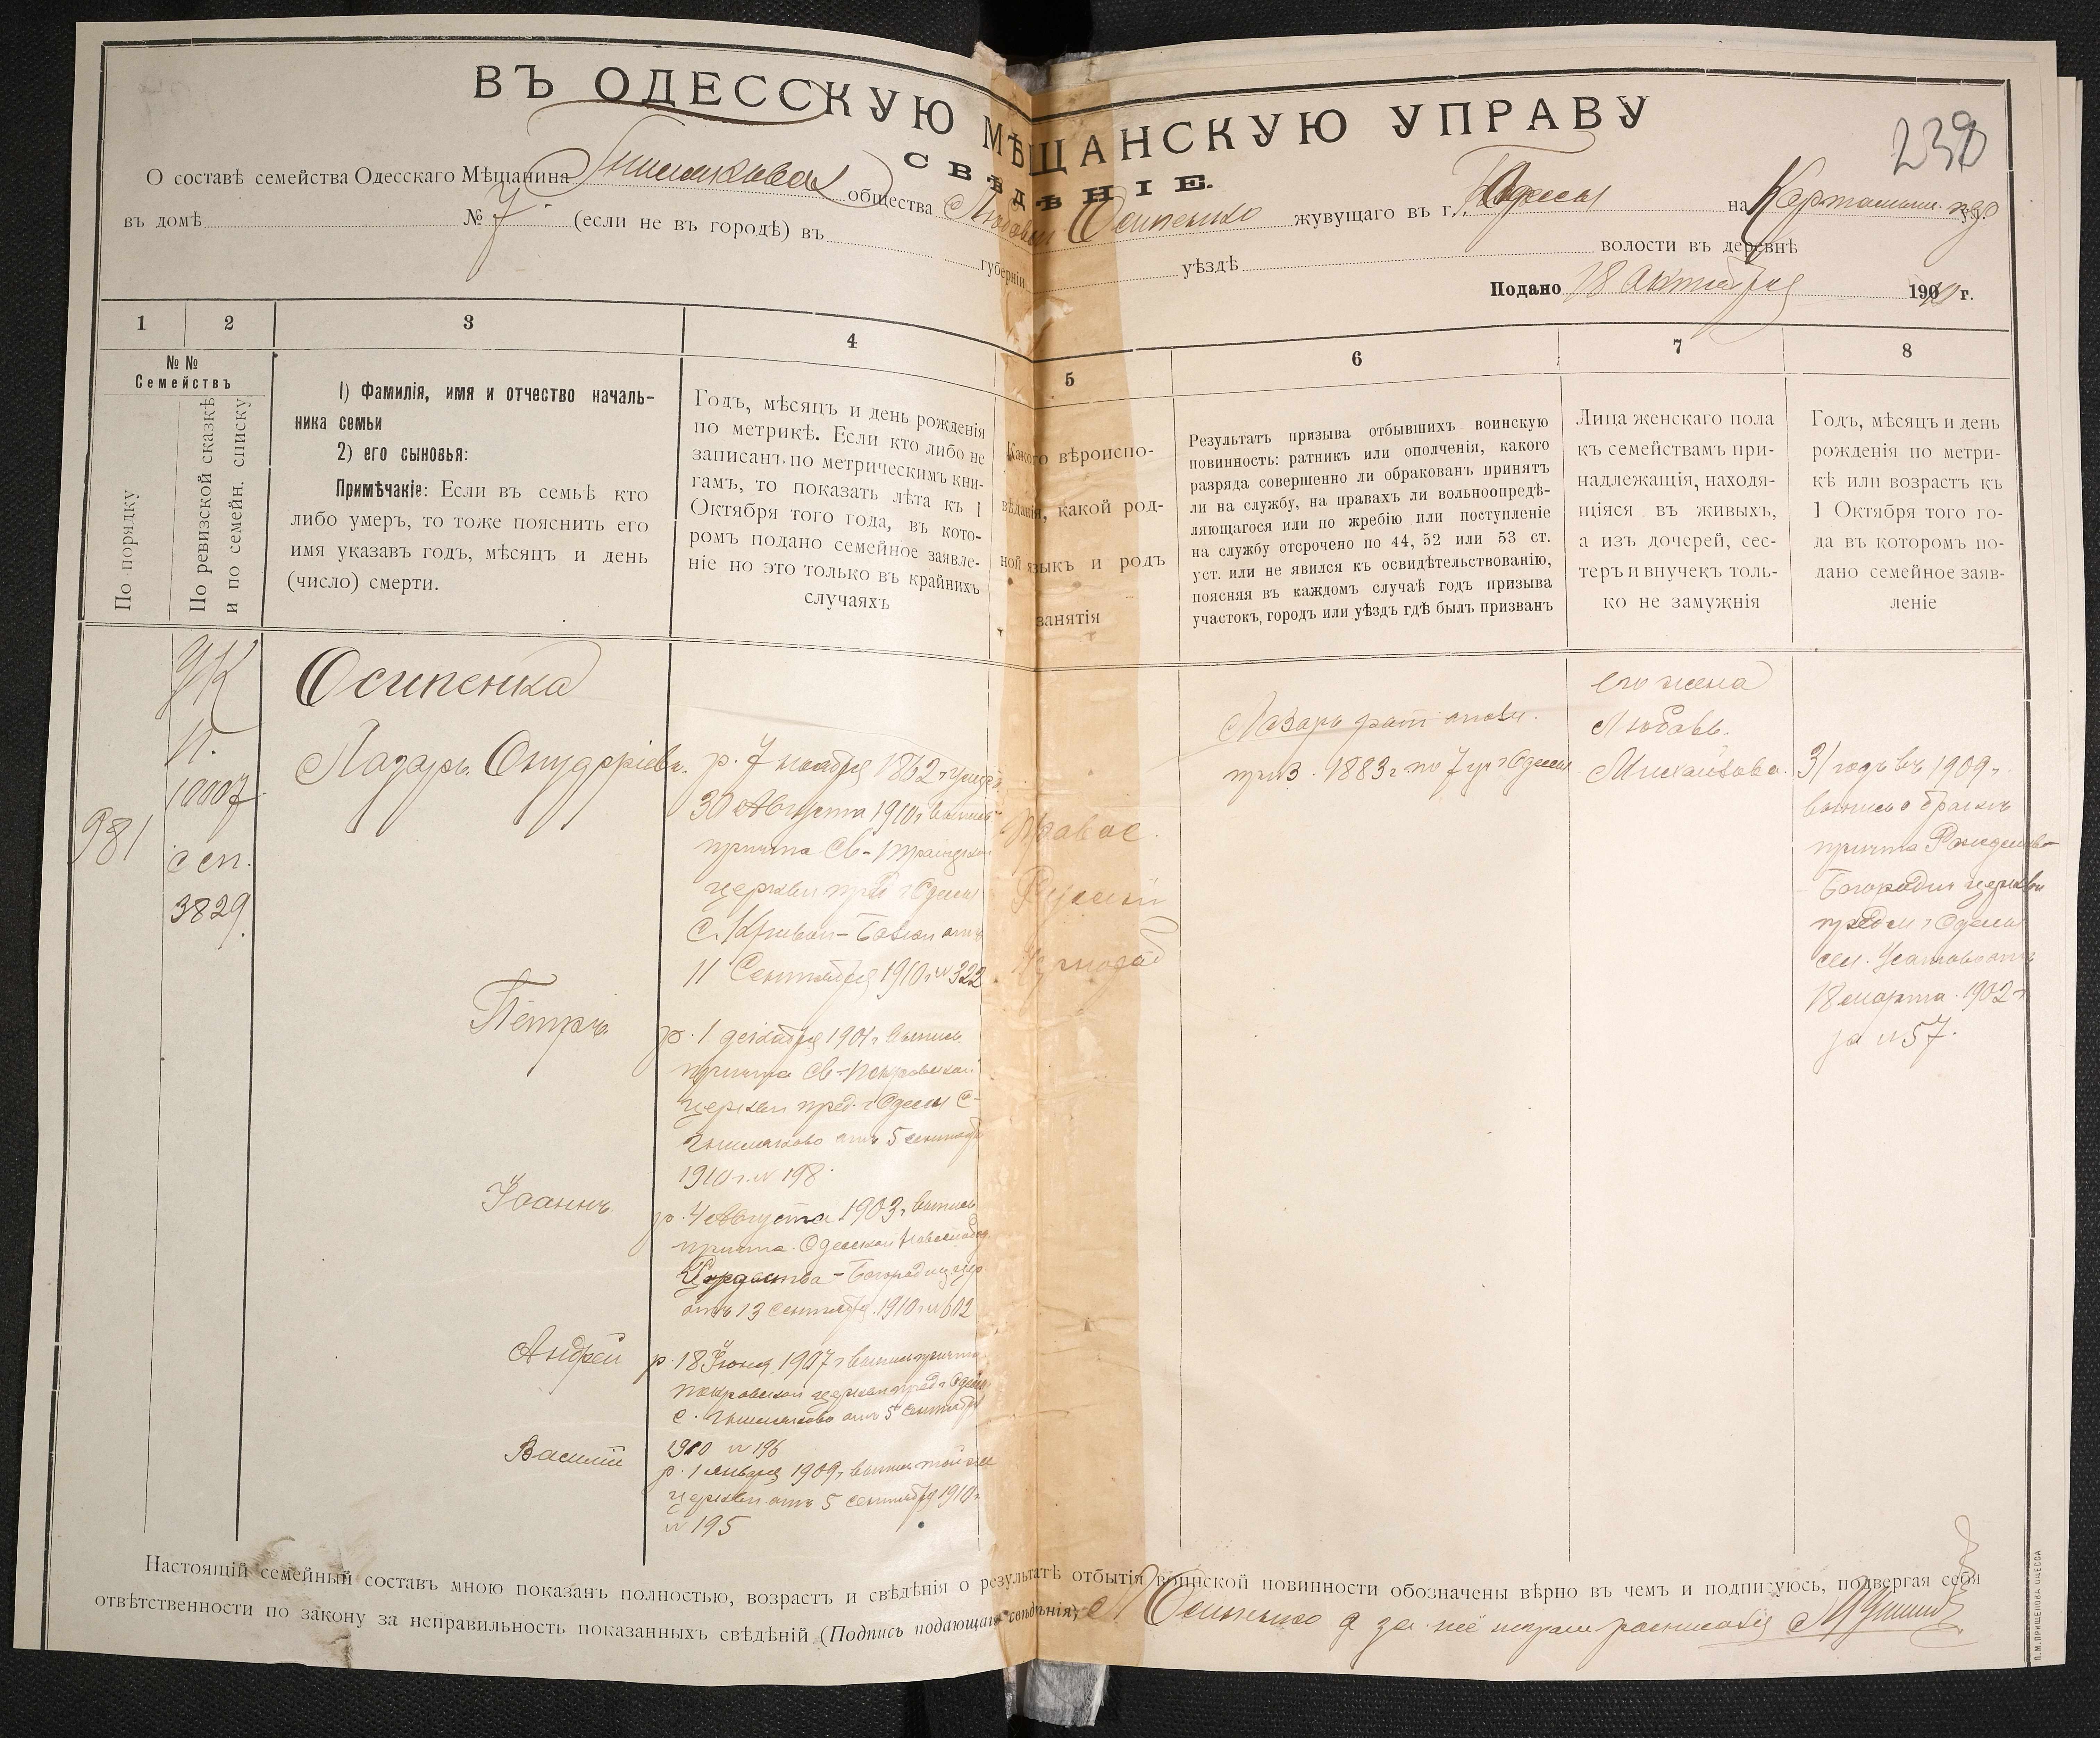 ВЪ ОДЕССКУЮ МѢЩАНСКУЮ УПРАВУ
СВѢДѢНІЕ.
239
О составѣ семейства Одесскаго Мѣщанина общества Любови Осипенко жувущаго въ г. Одессы на Картамыш. пер
въ домѣ № 7 (если не въ городѣ) въ губерніи уѣздѣ волости въ деревнѣ
Подано 18 Октября 1910 г.
1 2 3 4 5 6 7 8
№ №
Семействъ
По порядку
По ревизской сказкѣ
и по семейн. списку
1) Фамилія, имя и отчество началь-
ника семьи
2) его сыновья:
Примѣчаніе: Если въ семьѣ кто
либо умеръ, то тоже пояснить его
имя указавъ годъ, мѣсяцъ и день
(число) смерти.
Годъ, мѣсяцъ и день рожденія
по метрикѣ. Если кто либо не
записанъ по метрическимъ кни-
гамъ, то показать лѣта къ 1
Октября того года, въ кото-
ромъ подано семейное заявле-
ніе но это только въ крайнихъ
случаяхъ
Какого вѣроиспо-
вѣданія, какой род-
ной языкъ и родъ
занятія
Результатъ призыва отбывшихъ воинскую
повинность: ратникъ или ополченія, какого
разряда совершенно ли обракованъ принятъ
ли на службу, на правахъ ли вольноопредѣ-
ляющагося или по жребію или поступленіе
на службу отсрочено по 44, 52 или 53 ст.
уст. или не явился къ освидѣтельствованію,
поясняя въ каждомъ случаѣ годъ призыва
участокъ, городъ или уѣздъ гдѣ былъ призванъ
Лица женскаго пола
къ семействамъ при-
надлежащія, находя-
щіяся въ живыхъ,
а изъ дочерей, сес-
теръ и внучекъ толь-
ко не замужнія
Годъ, мѣсяцъ и день
рожденія по метри-
кѣ или возрастъ къ
1 Октября того го-
да въ котором по-
дано семейное заяв-
леніе
981
10007
сем.
3829
Осипенка
Лазарь Онуфріевъ.
р. 7 ноября 1862 г умеръ
30 Августа 1910 г выпись
причта Св-Троицкой
церкви пред г Одессы
С. Кривой-Балки отъ
11 Сентября 1910 г № 322
Правос.
Русскій
Лазарь рат. опол.
приз. 1883 г по 7 уч г Одессы
его жена
Любовь
Михайлова
31 годъ въ 1909 г
выпись о бракѣ
причта Рождество-
Богородич церкви
предм г Одессы
сел. Усатово отъ
18 марта 1902 г
за № 57.
Петръ
р. 1 декабря 1901 г выпись
причта Св-Покровской
церкви пред. г Одессы С-
Гниляково отъ 5 сентября
1910 г. № 198
Іоаннъ
р. 4 Августа 1903 г выпись
причта Одесской Новослобод
Рождества-Богородиц цер
отъ 13 сентября 1910 № 602
Андрей
р. 18 Іюня 1907 г выпись причта
покровской церкви пред г Одессы
с. Гниляково отъ 5 сентября
1910 № 196
Василій
р. 1 января 1909 г выпись той же
церкви отъ 5 сентября 1910 г
№ 195
Настоящій семейный составъ мною показанъ полностью, возрастъ и свѣдѣнія о результатѣ отбытія воинской повинности обозначены вѣрно въ чемъ и подписуюсь, подвергая себя
отвѣтственности по закону за неправильность показанныхъ свѣдѣній (Подпись подающаго свѣдѣнія) Осипенко а за неё
П.М. ПРИЩЕПОВА ОДЕССА